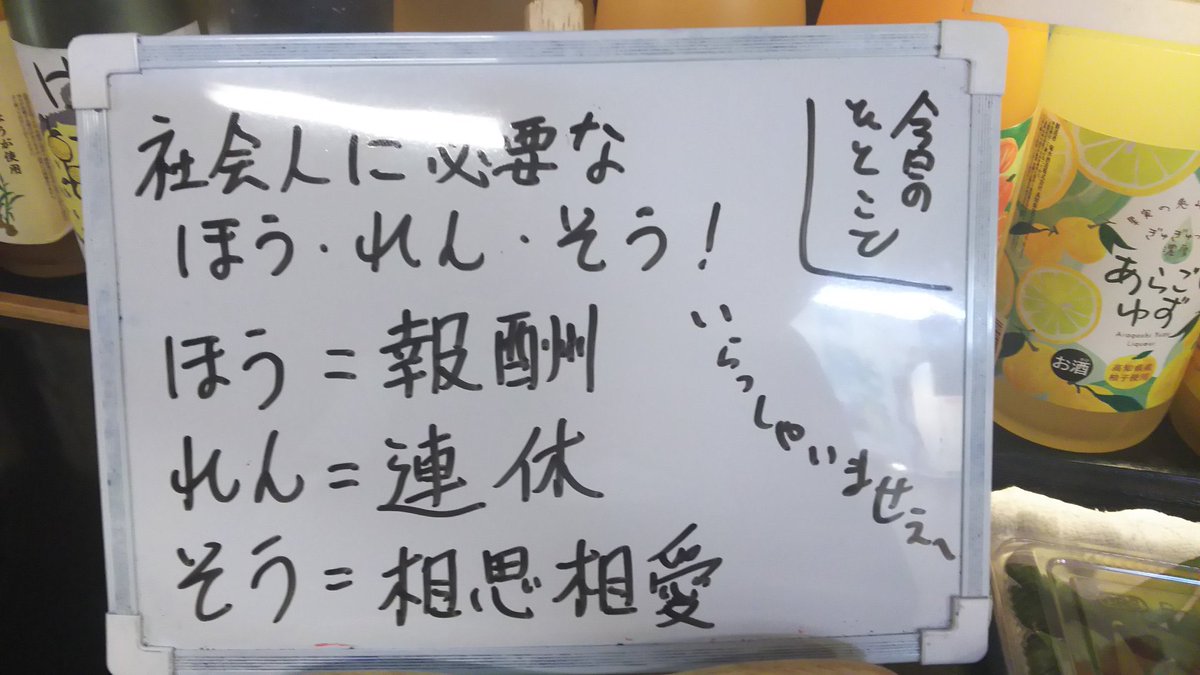 今日の
ひとこと
社会人に必要な
ほう・れん・そう!
ほう=報酬
れん=連休
そう=相思相愛
いらっしゃいませえ〜
あらごし
ゆず
Aragoshi Yuzu
Liqueur
お酒
高知県産
柚子使用